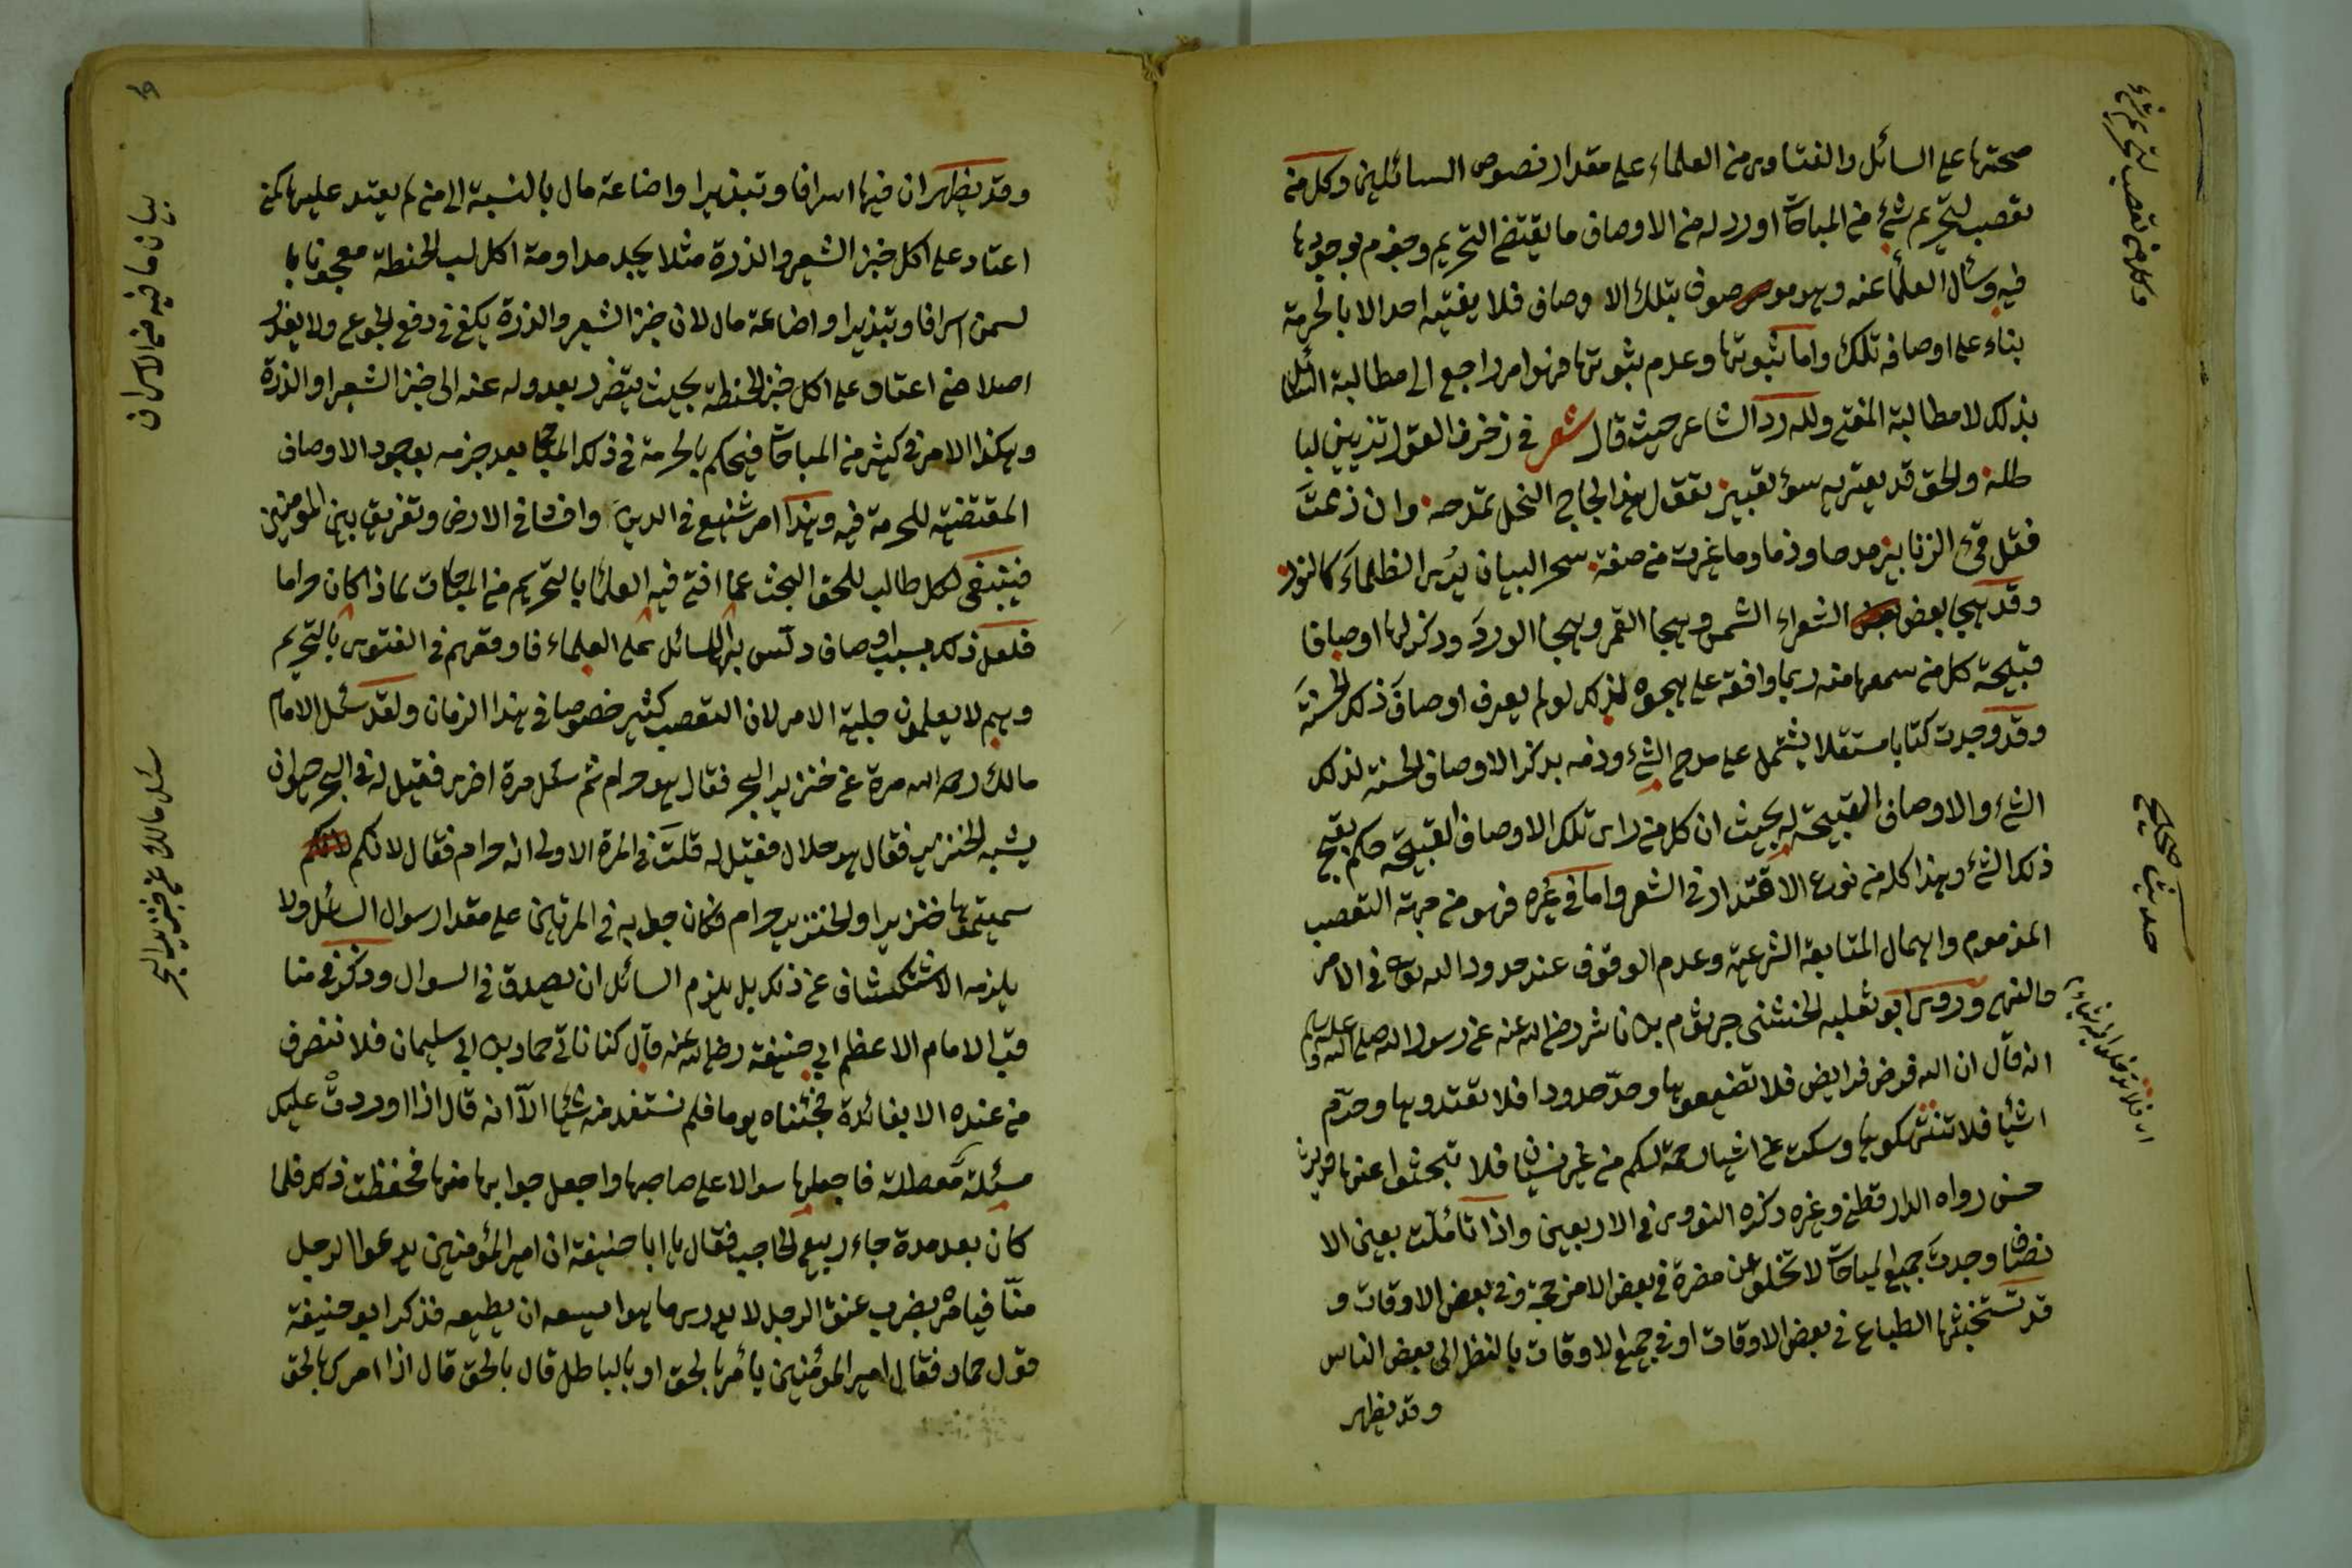 صحتها على السائل والفتاوى من العلماء على مقدار نصوص السائلين وكل من
تعصب لتحريم شئ من المباحات اورد له من الاوصاف ما يقتضى التحريم وجزم بوجودها
فيه وسأل العلماء عنه وهو موصوف بتلك الاوصاف فلا يفتيه احد الا بالحرمة
بناء على اوصافه تلك واما ثبوتها وعدم ثبوتها فهو امر راجع الى مطالبة السائل
بذلك لا مطالبة المفتى ولله در الشاعر حيث قال شعر فى زخرف القول تزيين لبا
طله والحق قد يعتريه سوء تعبير تقول هذا مجاج النحل تمدحه وان ذممت
فقل قئ الزنابير مدحا وذما وما غيرت من صفة سحر البيان يرى الظلماء كالنور
وقد هجا بعض الشعراء الشمس وهجا القمر وهجا الورد وذكر لها اوصافا
قبيحة كل من سمعها منه ربما وافقه على هجوه لذلك لو لم يعرف اوصاف ذلك الحسنة
وقد وجدت كتابا مستقلا يشتمل على مدح الشئ وذمه بذكر الاوصاف الحسنة لذلك
الشئ والاوصاف القبيحة له بحيث ان كل من راى تلك الاوصاف القبيحة حكم بقبح
ذلك الشئ وهذا كله من نوع الاقتدار فى الشعر واما فى غيره فهو من جهة التعصب
المذموم واهمال المتابعة الشرعية وعدم الوقوف عند حدود الله تعالى فى الامر
والنهى وروى ابو ثعلبه الخشنى جرثوم بن ناشر رضى الله عنه عن رسول الله صلى الله عليه وسلم
انه قال ان الله فرض فرايض فلا تضيعوها وحدّ حدودا فلا تعتدوها وحرّم
اشيأ فلا تنتهكوها وسكت عن اشيا رحمة لكم من غير نسيان فلا تبحثوا عنها حديث
حسن رواه الدارقطنى وغيره ذكره النووى فى الاربعين واذا تأملت بعين الا
نصاف وجدت جميع المباحات لا تخلو عن مضرة فى بعض الامزجة وفى بعض الاوقات و
قد تستخبثها الطباع فى بعض الاوقات او فى جميع الاوقات بالنظر الى بعض الناس
وقد يظهر
وكل من تعصب لتحريم شئ
حديث صحيح
وقد يظهر ان فيها اسرافا وتبذيرا واضاعة مال بالنسبة الى من لم يعتد عليها كمن
اعتاد على اكل خبز الشعير والذرة مثلا يجد مداومة اكل لب الحنطة معجونا با
لسمن اسرافا وتبذيرا واضاعة مال لان خبز الشعير والذرة يكفى فى دفع الجوع ولا يضر
اصلا من اعتاد على اكل خبز الحنطة بحيث يتضرر بعدوله عنه الى خبز الشعير او الذرة
وهكذا الامر فى كثير من المباحات فيحكم بالحرمة فى ذلك المباح بعد جزمه بوجود الاوصاف
المقتضيه للحرمة فيه وهذا امر شنيع فى الدين وافساد فى الارض وتفريق بين المؤمنين
فينبغى لكل طالب للحق البحث عما افتى فيه العلماء بالتحريم من المباحات لماذا كان حراما
فلعل ذلك بسبب اوصاف دلّس بها السائل على العلماء فاوقعهم فى الفتوى بالتحريم
وهم لا يعلمون جلية الامر لان التعصب كثير خصوصا فى هذا الزمان ولقد سئل الامام
مالك رحمه الله مرة عن خنزير البحر فقال هو حرام ثم سئل مرة اخرى فقيل له فى البحر حيوان
يشبه الخنزير فقال هو حلال فقيل له قلت فى المرة الاولى انه حرام فقال لانكم
سميتموها خنزيرا والخنزير حرام فكان جوابه فى المرتين على مقدار سوال السائل ولا
يلزمه الاستكشاف عن ذلك بل يلزم السائل ان يصدق فى السوال وذكر فى منا
قب الامام الاعظم ابى حنيفة رضى الله عنه قال كنا ناتى حماد بن ابى سليمان فلا ننصرف
من عنده الا بفائدة فجئناه يوما فلم نستفد منه شيئا الا انه قال اذا اوردت عليك
مسئلة معضلة فاجعلها سوالا على صاحبها واجعل جوابها منها فحفظت ذلك فلما
كان بعد مدة جاء ربيع الحاجب فقال يا ابا حنيفة ان امير المؤمنين يدعوا الرجل
منّا فيامره بضرب عنق الرجل لا يدرى ما هوا يسعه ان يطيعه فذكر ابو حنيفة
قول حماد فقال امير المؤمنين يأمر بالحق او بالباطل قال بالحق قال اذا امرك بالحق
بيان ما فيه من الاسراف
سئل مالك عن خنزير البحر